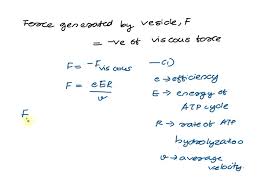 Force generated by vesicle, F
= -ve of viscous force
F = -F viscous —(1)
F = eER / v
e → efficiency
E → energy of ATP cycle
R → rate of ATP hydrolyzation
v → average velocity
F